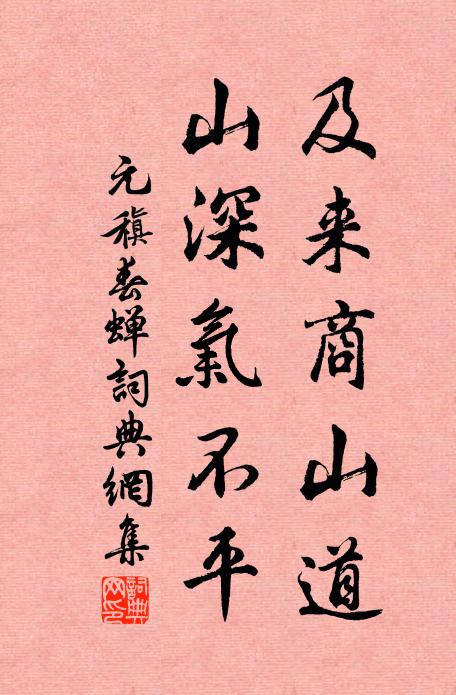 及来商山道
山深氣不平
元稹春蝉詞典網集
詞典
網印